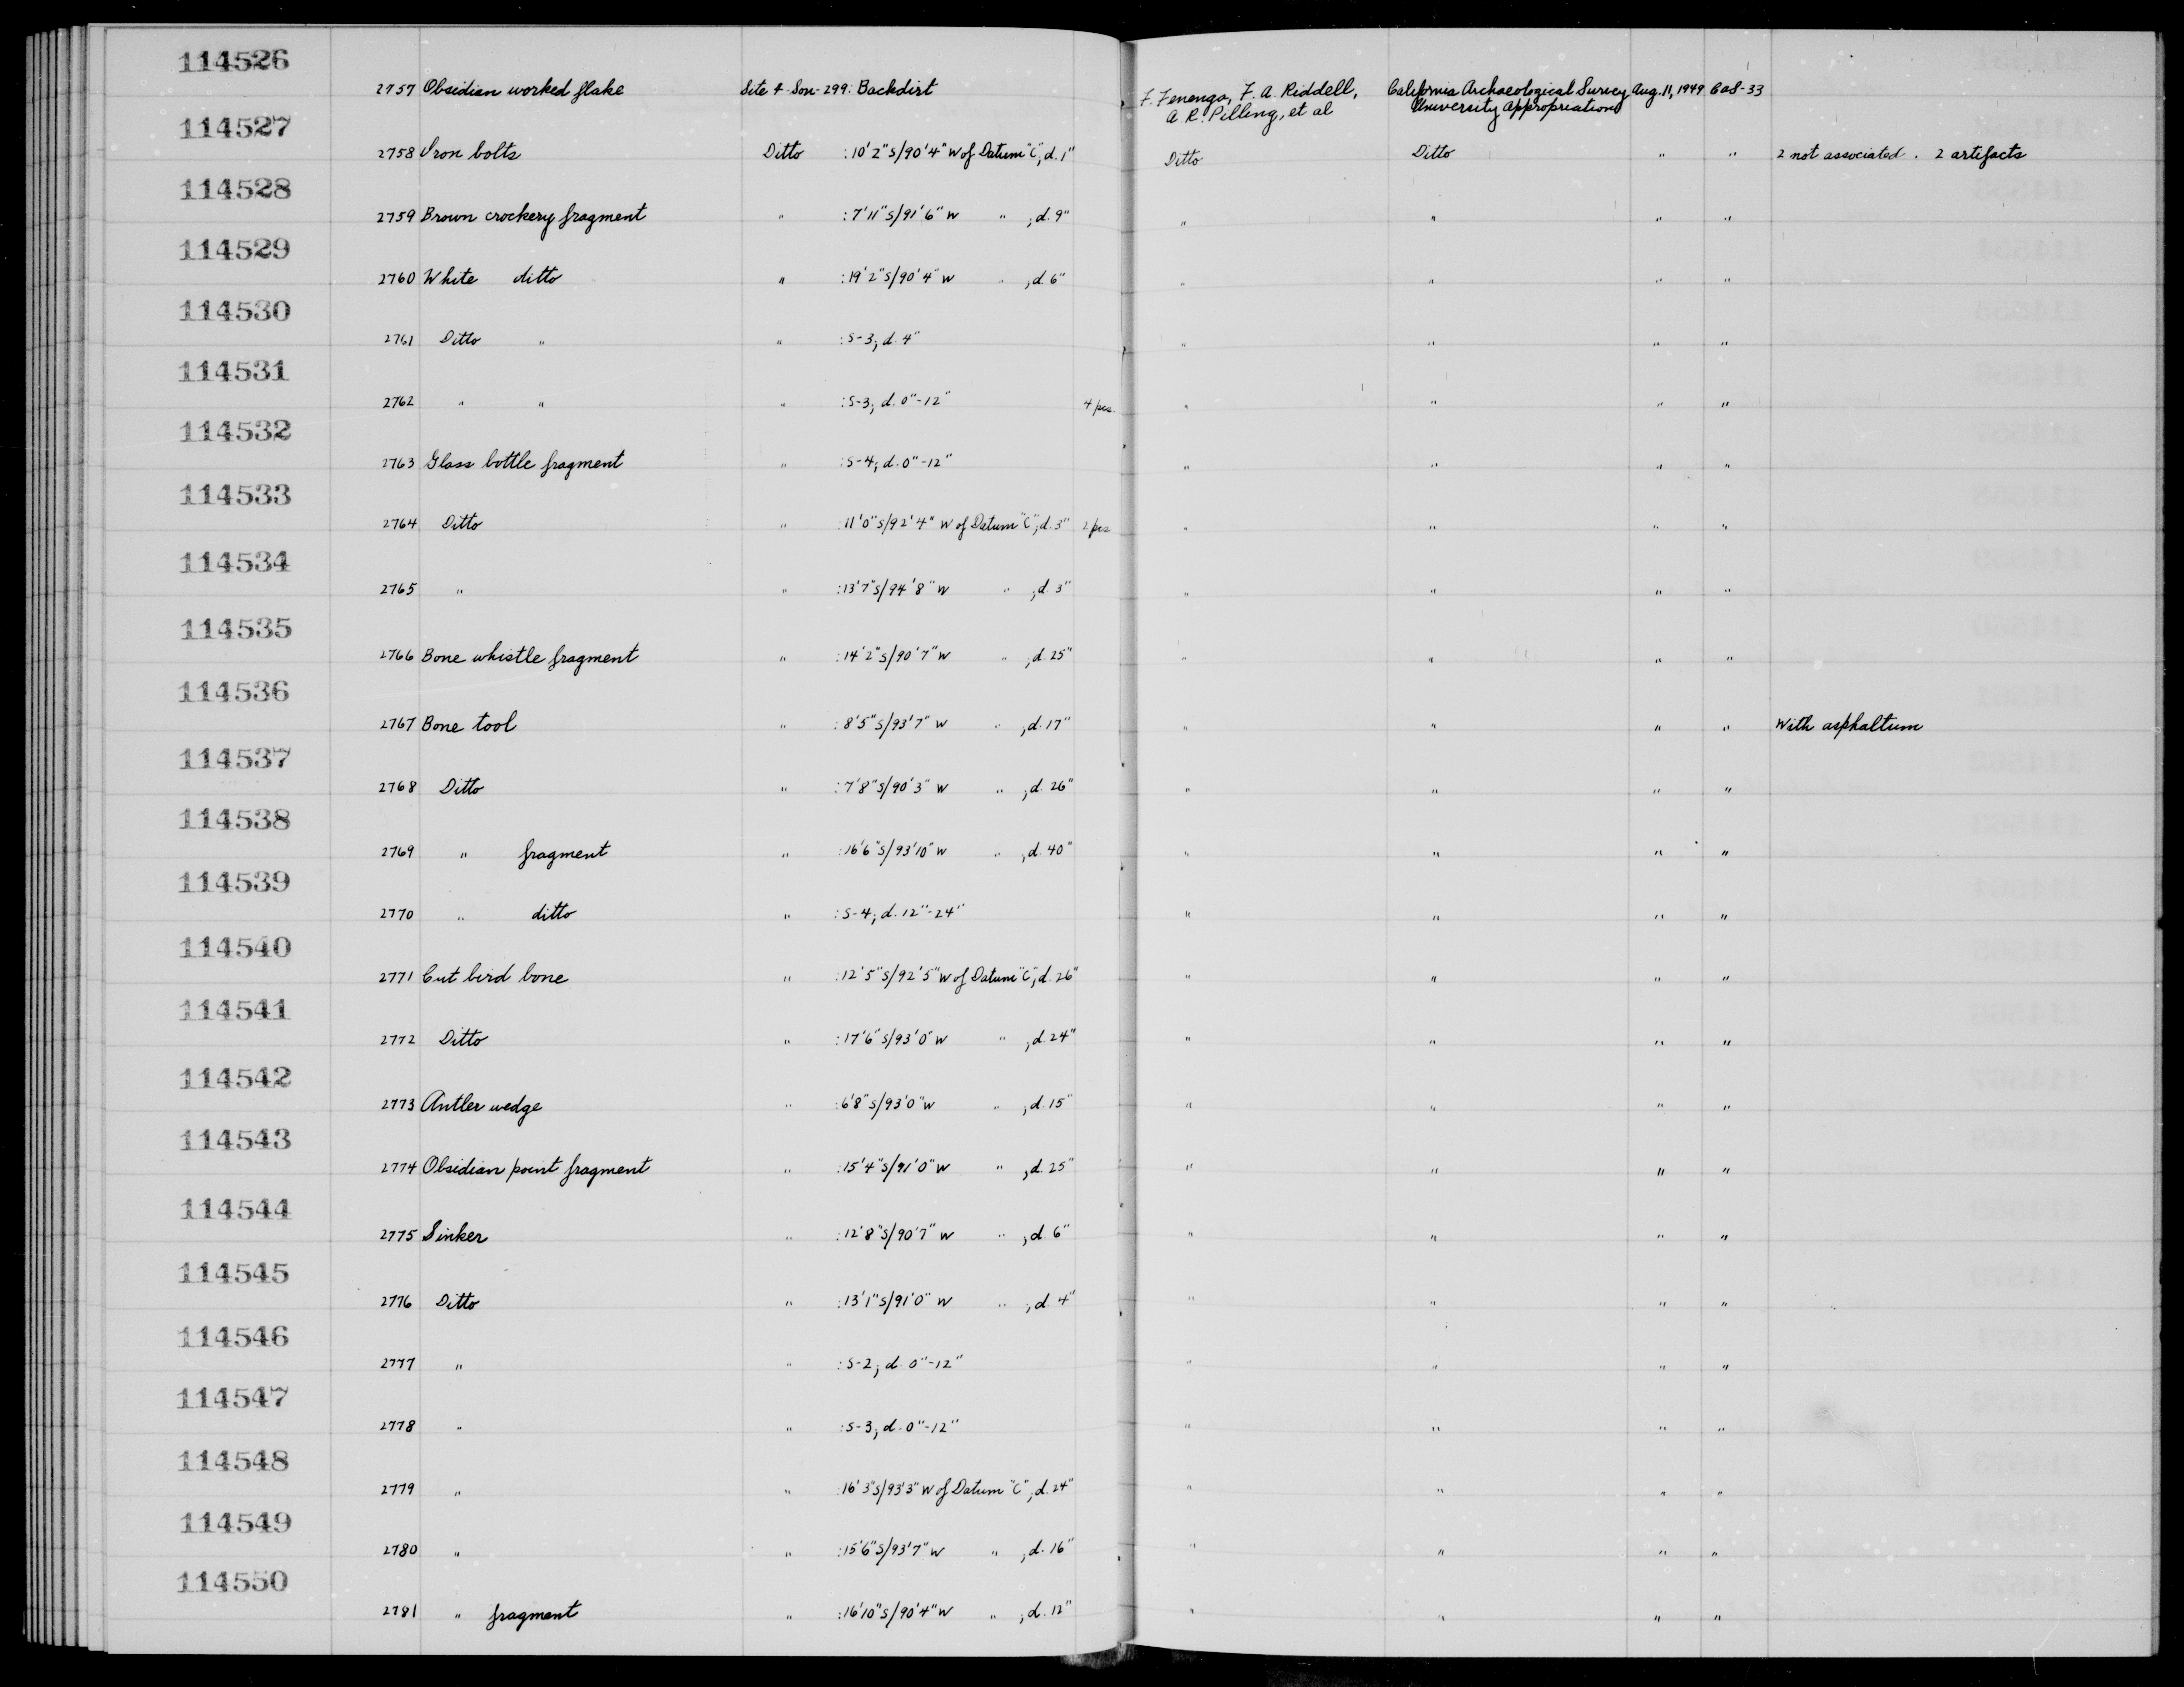 114526
2757 Obsidian worked flake Site 4-Son-299: Backdirt F. Fenenga, F. A. Riddell, California Archaeological Survey Aug. 11, 1949 CaS-33
A. R. Pilling, et al University Appropriation
114527
2758 Iron bolts Ditto : 10'2" S/90'4" W of Datum "C"; d. 1" Ditto Ditto " " 2 not associated. 2 artifacts
114528
2759 Brown crockery fragment " : 7'11" S/91'6" W " ; d. 9" " " " "
114529
2760 White ditto " : 19'2" S/90'4" W " ; d. 6" " " " "
114530
2761 Ditto " " : S-3; d. 4" " " " "
114531
2762 " " " : S-3; d. 0"-12" 4 pcs. " " " "
114532
2763 Glass bottle fragment " : S-4; d. 0"-12" " " " "
114533
2764 Ditto " : 11'0" S/92'4" W of Datum "C"; d. 3" 2 pcs " " " "
114534
2765 " " : 13'7" S/94'8" W " ; d. 3" " " " "
114535
2766 Bone whistle fragment " : 14'2" S/90'7" W " ; d. 25" " " " "
114536
2767 Bone tool " : 8'5" S/93'7" W " ; d. 17" " " " " With asphaltum
114537
2768 Ditto " : 7'8" S/90'3" W " ; d. 26" " " " "
114538
2769 " fragment " : 16'6" S/93'10" W " ; d. 40" " " " "
114539
2770 " ditto " : S-4; d. 12"-24" " " " "
114540
2771 Cut bird bone " : 12'5" S/92'5" W of Datum "C"; d. 26" " " " "
114541
2772 Ditto " : 17'6" S/93'0" W " ; d. 24" " " " "
114542
2773 Antler wedge " : 6'8" S/93'0" W " ; d. 15" " " " "
114543
2774 Obsidian point fragment " : 15'4" S/91'0" W " ; d. 25" " " " "
114544
2775 Sinker " : 12'8" S/90'7" W " ; d. 6" " " " "
114545
2776 Ditto " : 13'1" S/91'0" W " ; d. 4" " " " "
114546
2777 " " : S-2; d. 0"-12" " " " "
114547
2778 " " : S-3; d. 0"-12" " " " "
114548
2779 " " : 16'3" S/93'3" W of Datum "C"; d. 24" " " " "
114549
2780 " " : 15'6" S/93'7" W " ; d. 16" " " " "
114550
2781 " fragment " : 16'10" S/90'4" W " ; d. 12" " " " "